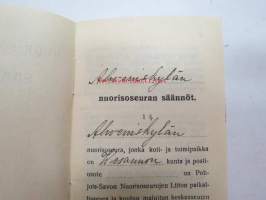 Ahveniskylän
nuorisoseuran säännöt.
1 §
Ahveniskylän
nuorisoseura, jonka koti- ja toimipaikka
on Vesannon kunta ja posti-
osote on Poh-
jois-Savon Nuorisoseurojen Liiton paikal-